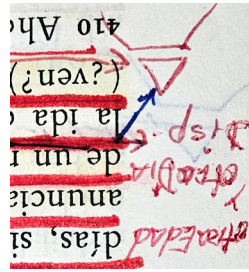 días, si
anuncia
de un
la ida
(¿ven?)
410 Aho
otraEdad
y otroDIA
Disp.